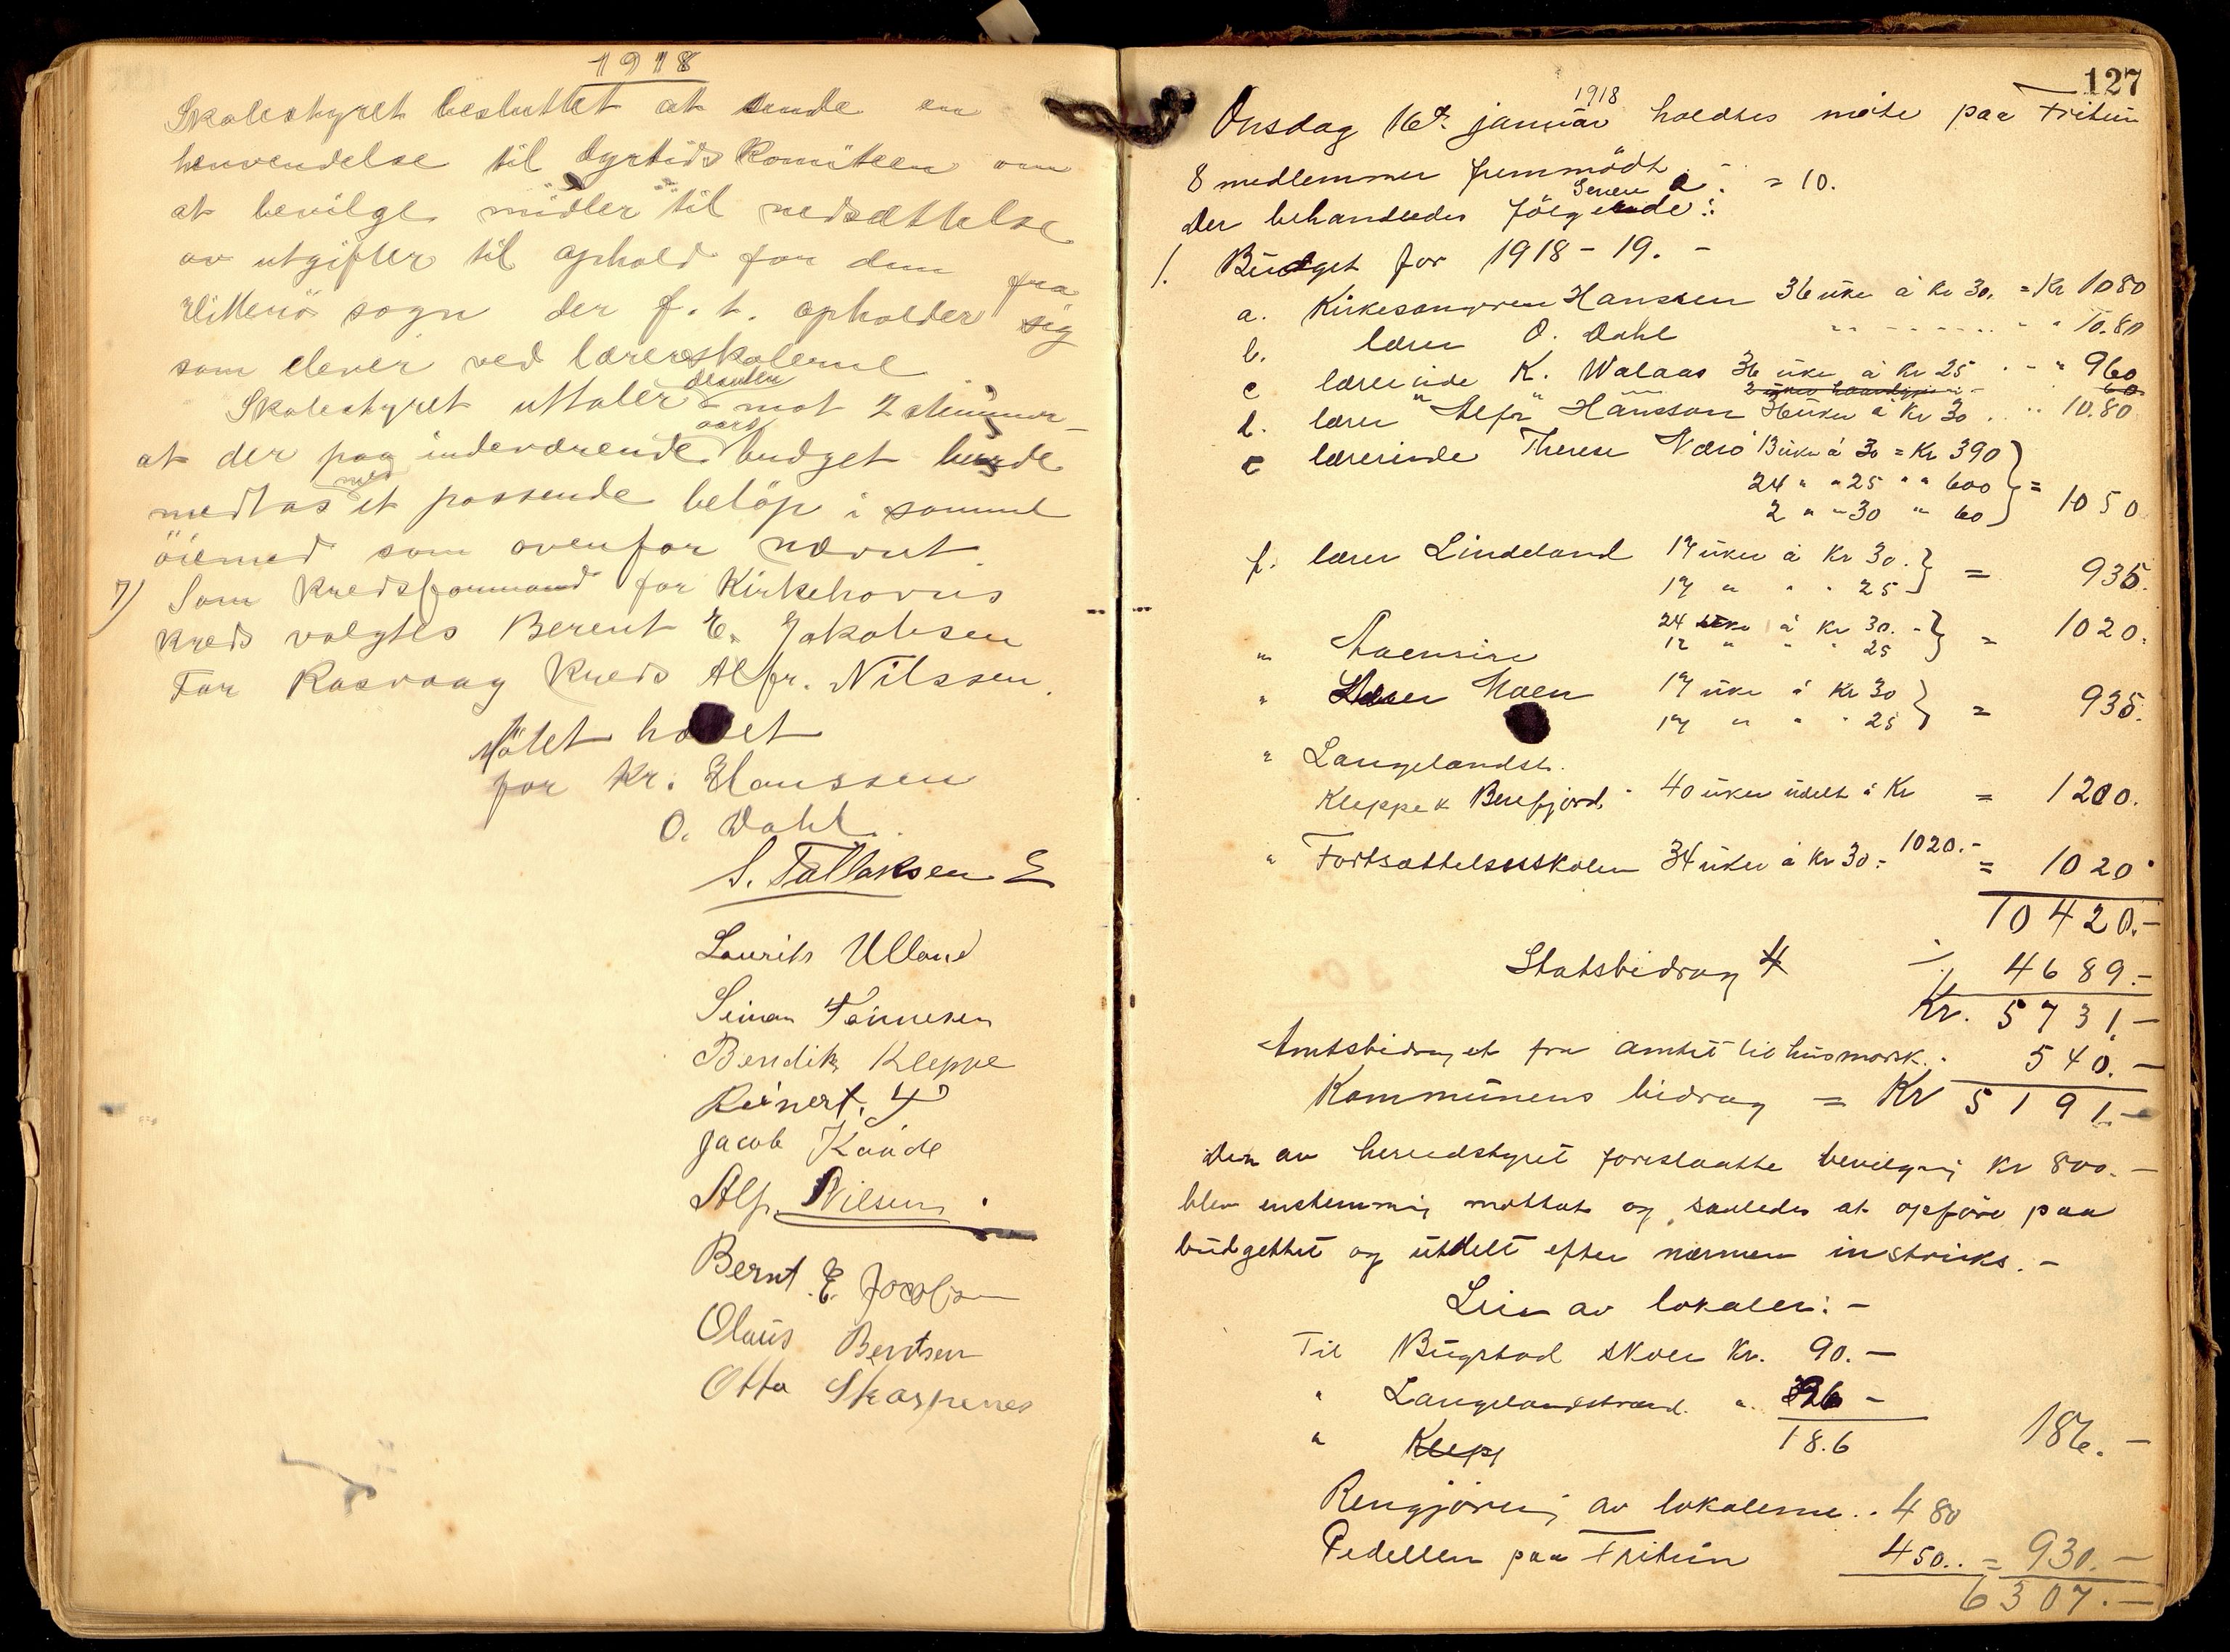 1918
Skolestyret besluttet at sende en
henvendelse til dyrtidskomiteen om
at bevilge midler til nedsættelse
av utgifter til ophold for dem fra
Hitterø sogn der f. t. opholder sig
som elever ved lærerskolerne
Skolestyret uttaler desuten mot 2 stemmer
at der paa indeværende aars budget burde
medtas et passende beløp i samme
øiemed som ovenfor nævnt.
7) Som kredsformand for Kirkehavns
kreds valgtes Berent E. Jakobsen
For Rasvaag kreds Alfr. Nilssen.
Møtet hævet
for Kr. Hanssen
O. Dahl.
S. Tallaksen E
Laurits Ulland
Seiman Tønnesen
Bendik Kleppe
Reinert.
Jacob Kaade
Alf. Nilsen
Bernt E. Jacobsen
Olaus Berntsen
Otto Skarpenes
127
Onsdag 16de januar 1918 holdtes møte paa Fritun
8 medlemmer fremmødt. Senere 2. = 10.
Der behandledes følgende:
1. Budget for 1918 - 19. -
a. Kirkesangeren Hanssen 36 uker á kr 30. = Kr 1080
b. lærer O. Dahl " " 10.80
c lærerinde K. Walaas 36 uker á Kr 25 . - " 960
60
d. lærer "Alfr" Hansson 36 uker á Kr 30 . . " 10.80
e lærerinde Therese Næsø 13 uker á 30 = Kr 390
24 " " 25 " " 600 } = 1050
2 " " 30 " 60
f. lærer Lindeland 17 uker á Kr 30. } = 935.
17 " " " 25
" Aaensire 24 uker á Kr 30. - } = 1020.
12 " " " 25
" Lærer Moen 17 uker á Kr 30 } = 935.
17 " " " 25
" Langelandst.
Kleppe & Berefjord. 40 uker udelt á Kr = 1200.
" Fortsættelsesskolen 34 uker á Kr 30 = 1020.- = 1020.
10420.-
Statsbidrag 4 ./. 4689.-
Kr. 5731.-
Amtsbidraget fra amtet til husmorsk.. 540.-
Kommunens bidrag = Kr 5191.-
Den av herredstyret foreslaatte bevilgning Kr 800.-
blev enstemmig mottat og saaledes at opføre paa
budgettet og utdelt efter nærmere instruks. -
Leie av lokaler: -
Til Bugstad skole Kr. 90. -
" Langelandstrand. ". 96 -
" Klepp 18.6 186. -
Rengjøring av lokalerne . . 480
Pedellen paa Fritun 450.. = 930. -
6307. -